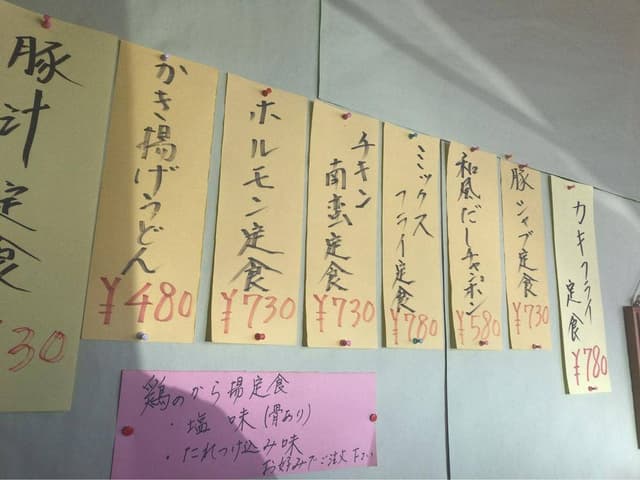 豚汁定食
30
かき揚げうどん
¥480
ホルモン定食
¥730
チキン
南蛮定食
¥730
ミックス
フライ定食
¥780
和風だしチャンポン
¥580
豚シャブ定食
¥730
カキフライ
定食
¥780
鶏のから揚定食
・塩味(骨あり)
・たれつけ込み味
お好みでご注文下さい